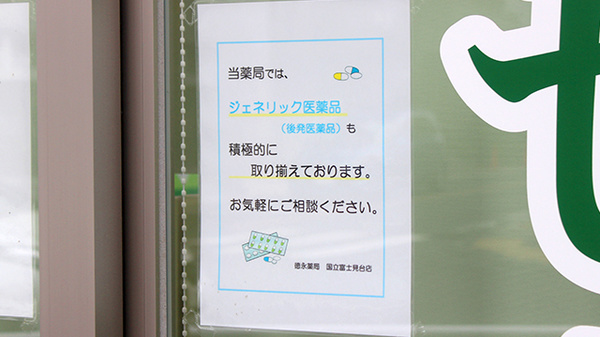 当薬局では、
ジェネリック医薬品
（後発医薬品）も
積極的に
取り揃えております。
お気軽にご相談ください。
徳永薬局 国立富士見台店
せ